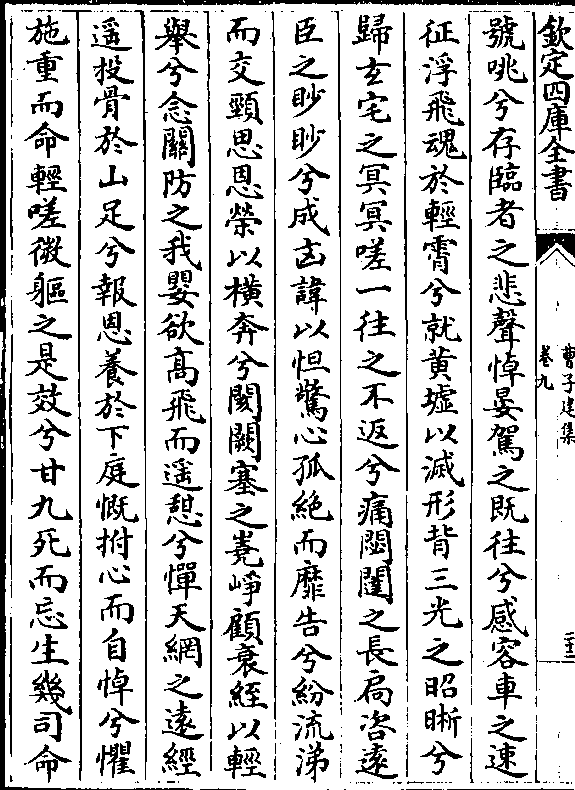 欽定四庫全書
曹子建集
卷九
號咷兮存臨者之悲聲悼晏駕之既往兮感容車之速
征浮飛魂於輕霄兮就黄墟以滅形背三光之昭晣兮
歸玄宅之冥冥嗟一往之不返兮痛閟闥之長扃咨遠
臣之眇眇兮成凶諱以怛驚心孤絶而靡告兮紛流涕
而交頸思恩榮以横奔兮閡闕塞之嶤崢顧衰絰以輕
舉兮念關防之我嬰欲髙飛而遥憩兮憚天網之遠經
遥投骨於山足兮報恩養於下庭慨拊心而自悼兮懼
施重而命輕嗟微軀之是效兮甘九死而忘生幾司命